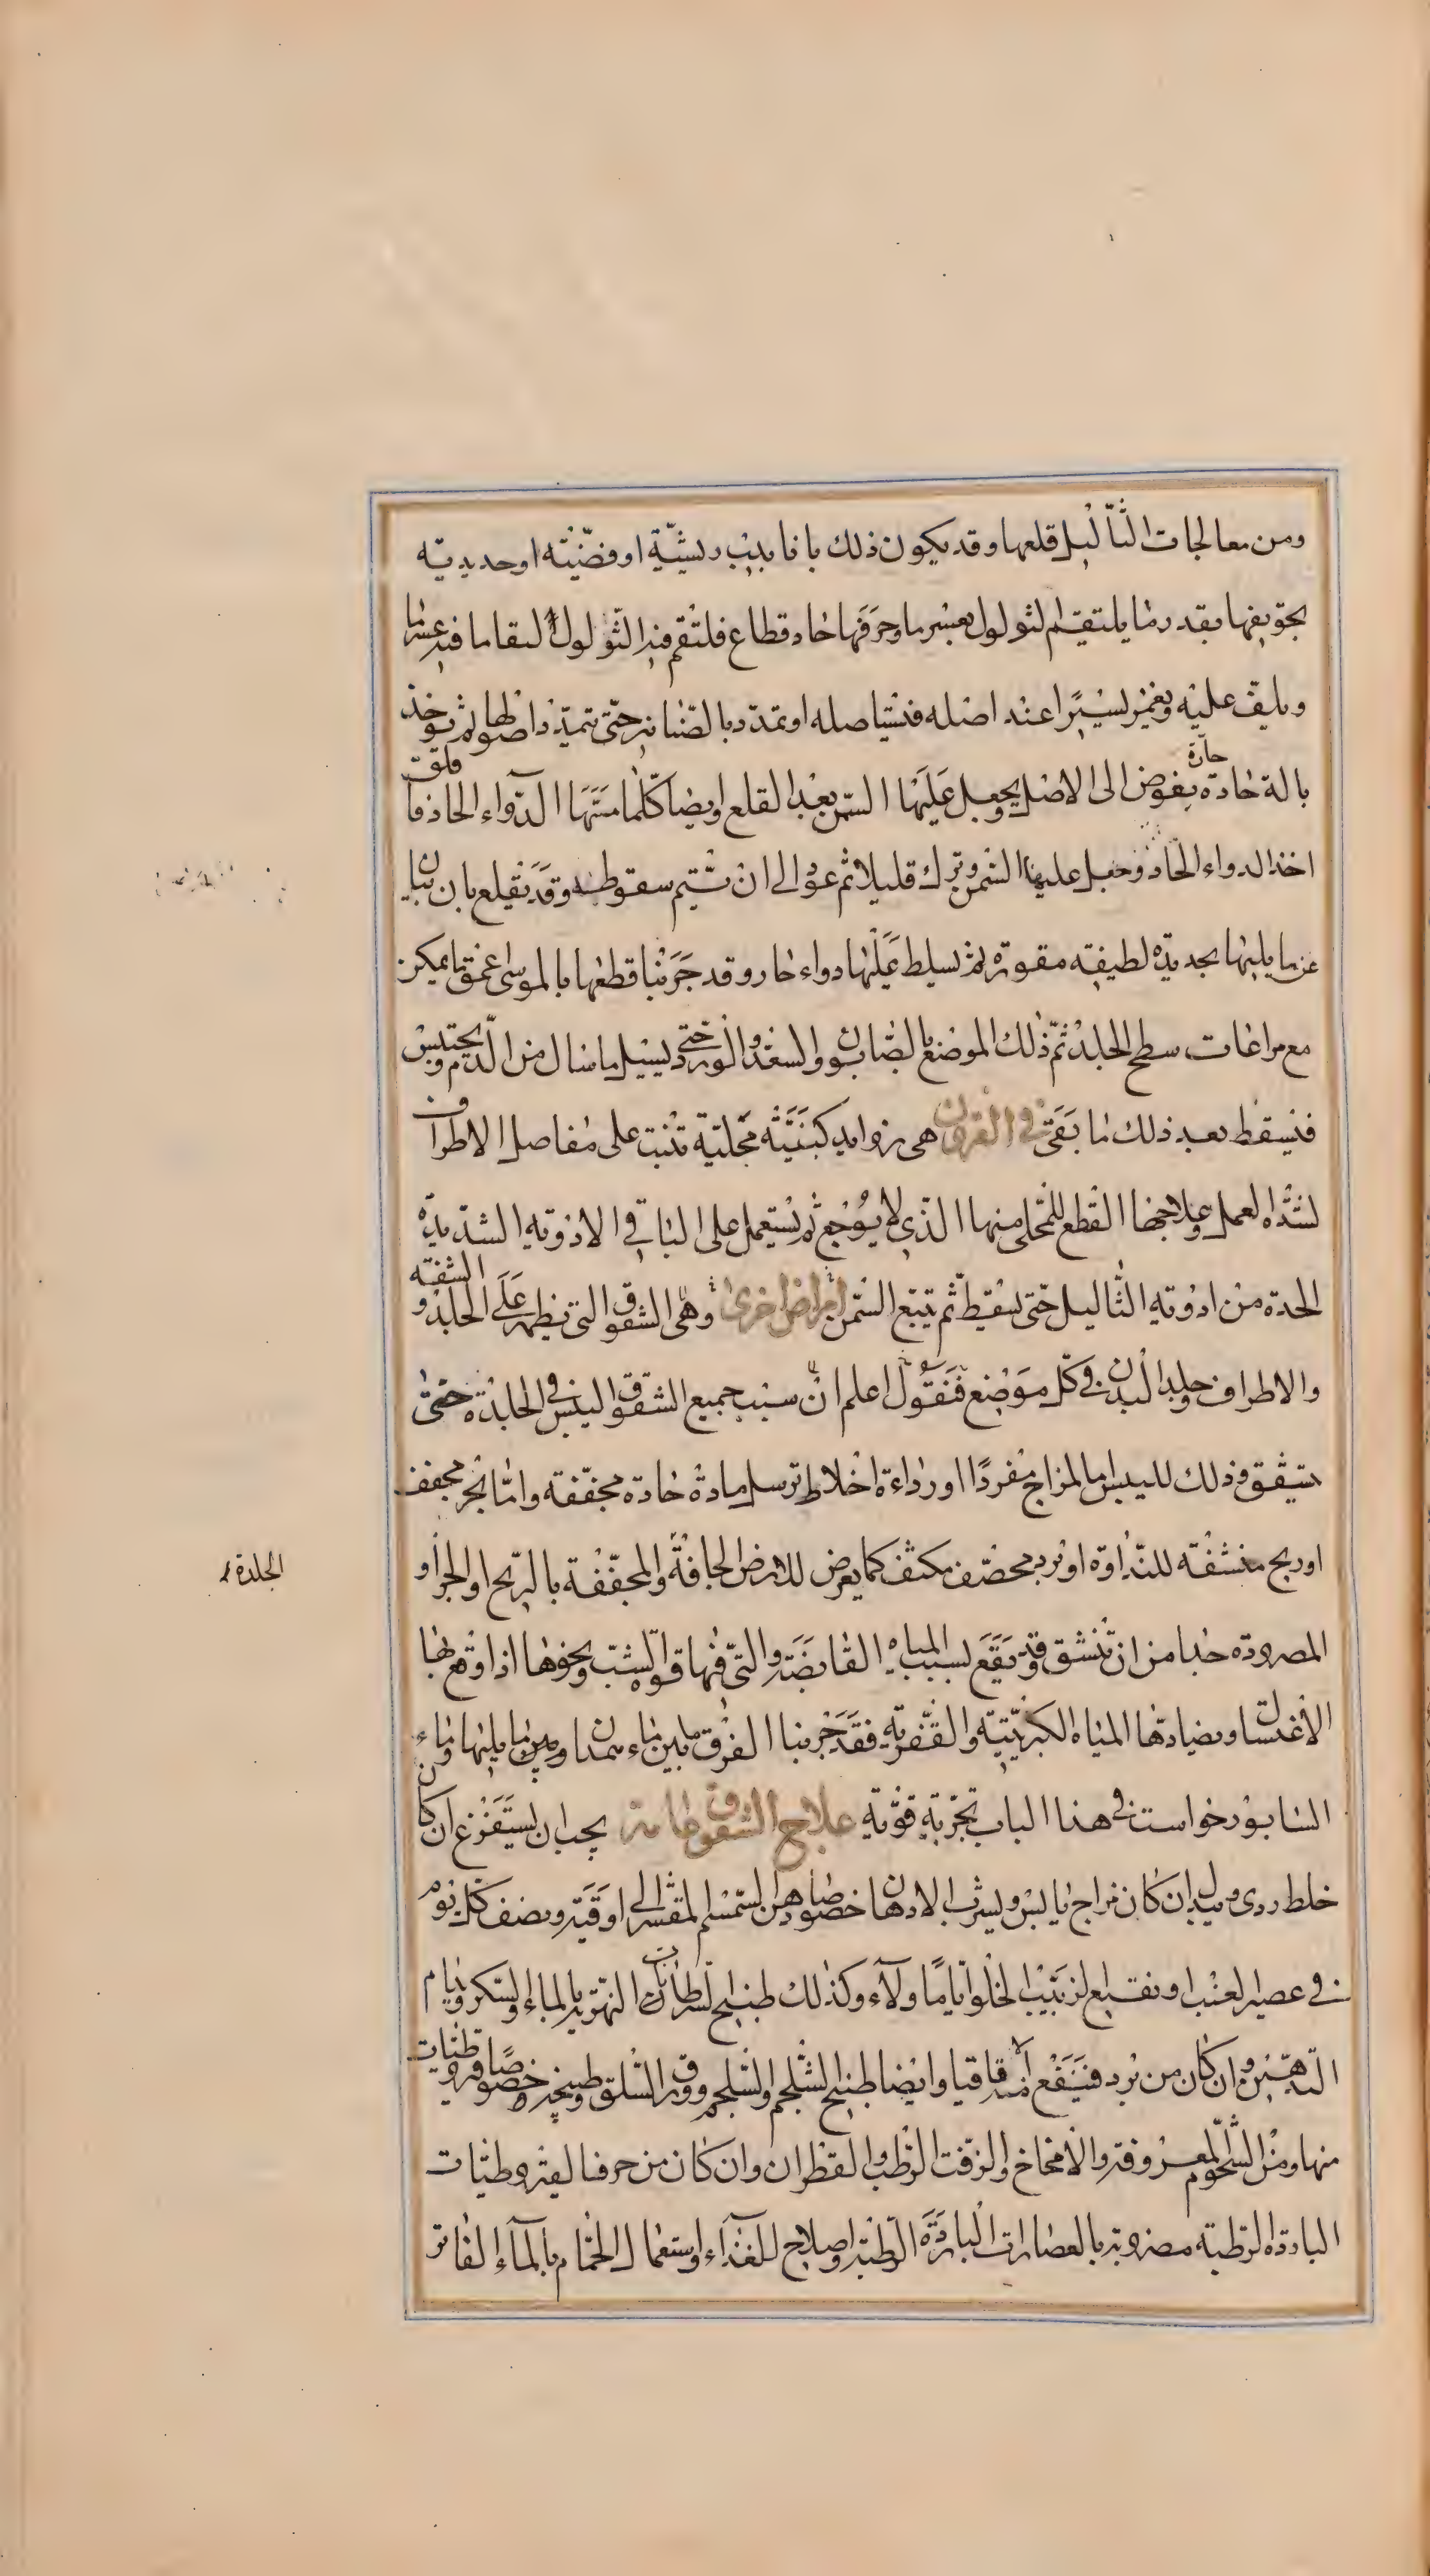 ومن معالجات الثآليل قلعها وقد يكون ذلك بانابيب ريشيّة او فضّيّته او حديديّه
بجوّيفها بقدر ما يلتقم الثولول بعسر ما وحرفها حاد قطاع فلتقم فيه الثولول التقاما فيه عسر ما
ويلفّ عليه ويغمز يسيرًا عند اصله فيستاصله او تمدد بالصّنانير حتّى تميّد اصولها ثم توخذ
بالة حادة يغوض الى الاصل ويجعل عَلَيها السّمن بعْد القلع وايضا كلّما مسّتها الدّواء الحاد فا فلق
حارة
اخذ الدواء الحاد وجعل عليها السّمن وترك قليلا ثم عود الى ان يتم سقوطه وقد يقلع بان يبان
عن ما يليها بحديده لطيفه مقوره ثم يسلط عَلَيها دواء حار وقد جَرّبنا قطعها بالموسى اعمق ما يمكن
مع مراعات سطح الجلد ثمّ ذلك الموضع بالصّابون والسعد والورد حتّى يسيل ما سال من الدّم ويحتبس
فيسقط بعد ذلك ما بَقَى في القرون هى زوايد متجليّة تنبت على مفاصل الاطراف
لشدّه العمل وعلاجها القطع للمتجلى منها الذّي لا يُوجع ثم يستعمل على الباقي الادويه الشديدة
الحدة من ادويه الثّاليل حتى يسقط ثم يتبع السّمن امراض اخرى وهى الشقوق التى تظهر عَلَى الجلد و الشفته
والاطراف وجلد البدن في كلّ مَوَضع فَنَقُول اعلم انّ سبب جميع الشقوق اليبس في الجلدة حتى
يتشقق وذلك لليبس اما لمزاج مفردًا او رداءة اخلاط ترسل مادة حادة مجفّفة وامّا لحر مجفف
او ريح منشفته للنّداوة او برد محصّف مكثف كما يعرض للارض الجافّة والمجفّفة بالرّيح او الحر او
الجلدة
المصرودة جدا من ان تنشق وقد يَقَع بسبب المياه القابضَة والتّى فيها قوة الشبّ ونحوها اذا وقع بها
الاغتسال ويضادها المياه الكبريّتيّه والقفريّه فقد جَرّبنا الفرق ما بين ماء همدان وبين ما يليها وماء
السابور خواست في هذا الباب تجربة قويّه علاج الشقوق عامة يجب ان يستَفَرغ ان كان
خلط ردى ويبدل ان كان مزاج يابس ويشرب الادهان خصوصا دهن السّمسم المقشر الى اوقيّة ونصف كل يوم
في عصير العنب او نقيع الزبيب الحلو ايّامًا ولآء وكذلك طبيخ السّرطانات النهريه بالماء والسكر ويدام
التّدهين وان كان من برد فينفع منه الاقاقيا وايضا طبيخ الشلجم والسّلجم وورق السّلق وطبيخه وخصوصًا قيروطيات
منها ومن الشحوم المعروفة والامخاخ والزفت الرّطب والقطران وان كان من حر فالقيروطيّات
الباردة الرّطبه مضروبة بالعصارات الباردَة الرّطبة واصلاح للغذآء واستعمال الحمّام بالمآء الفاتر